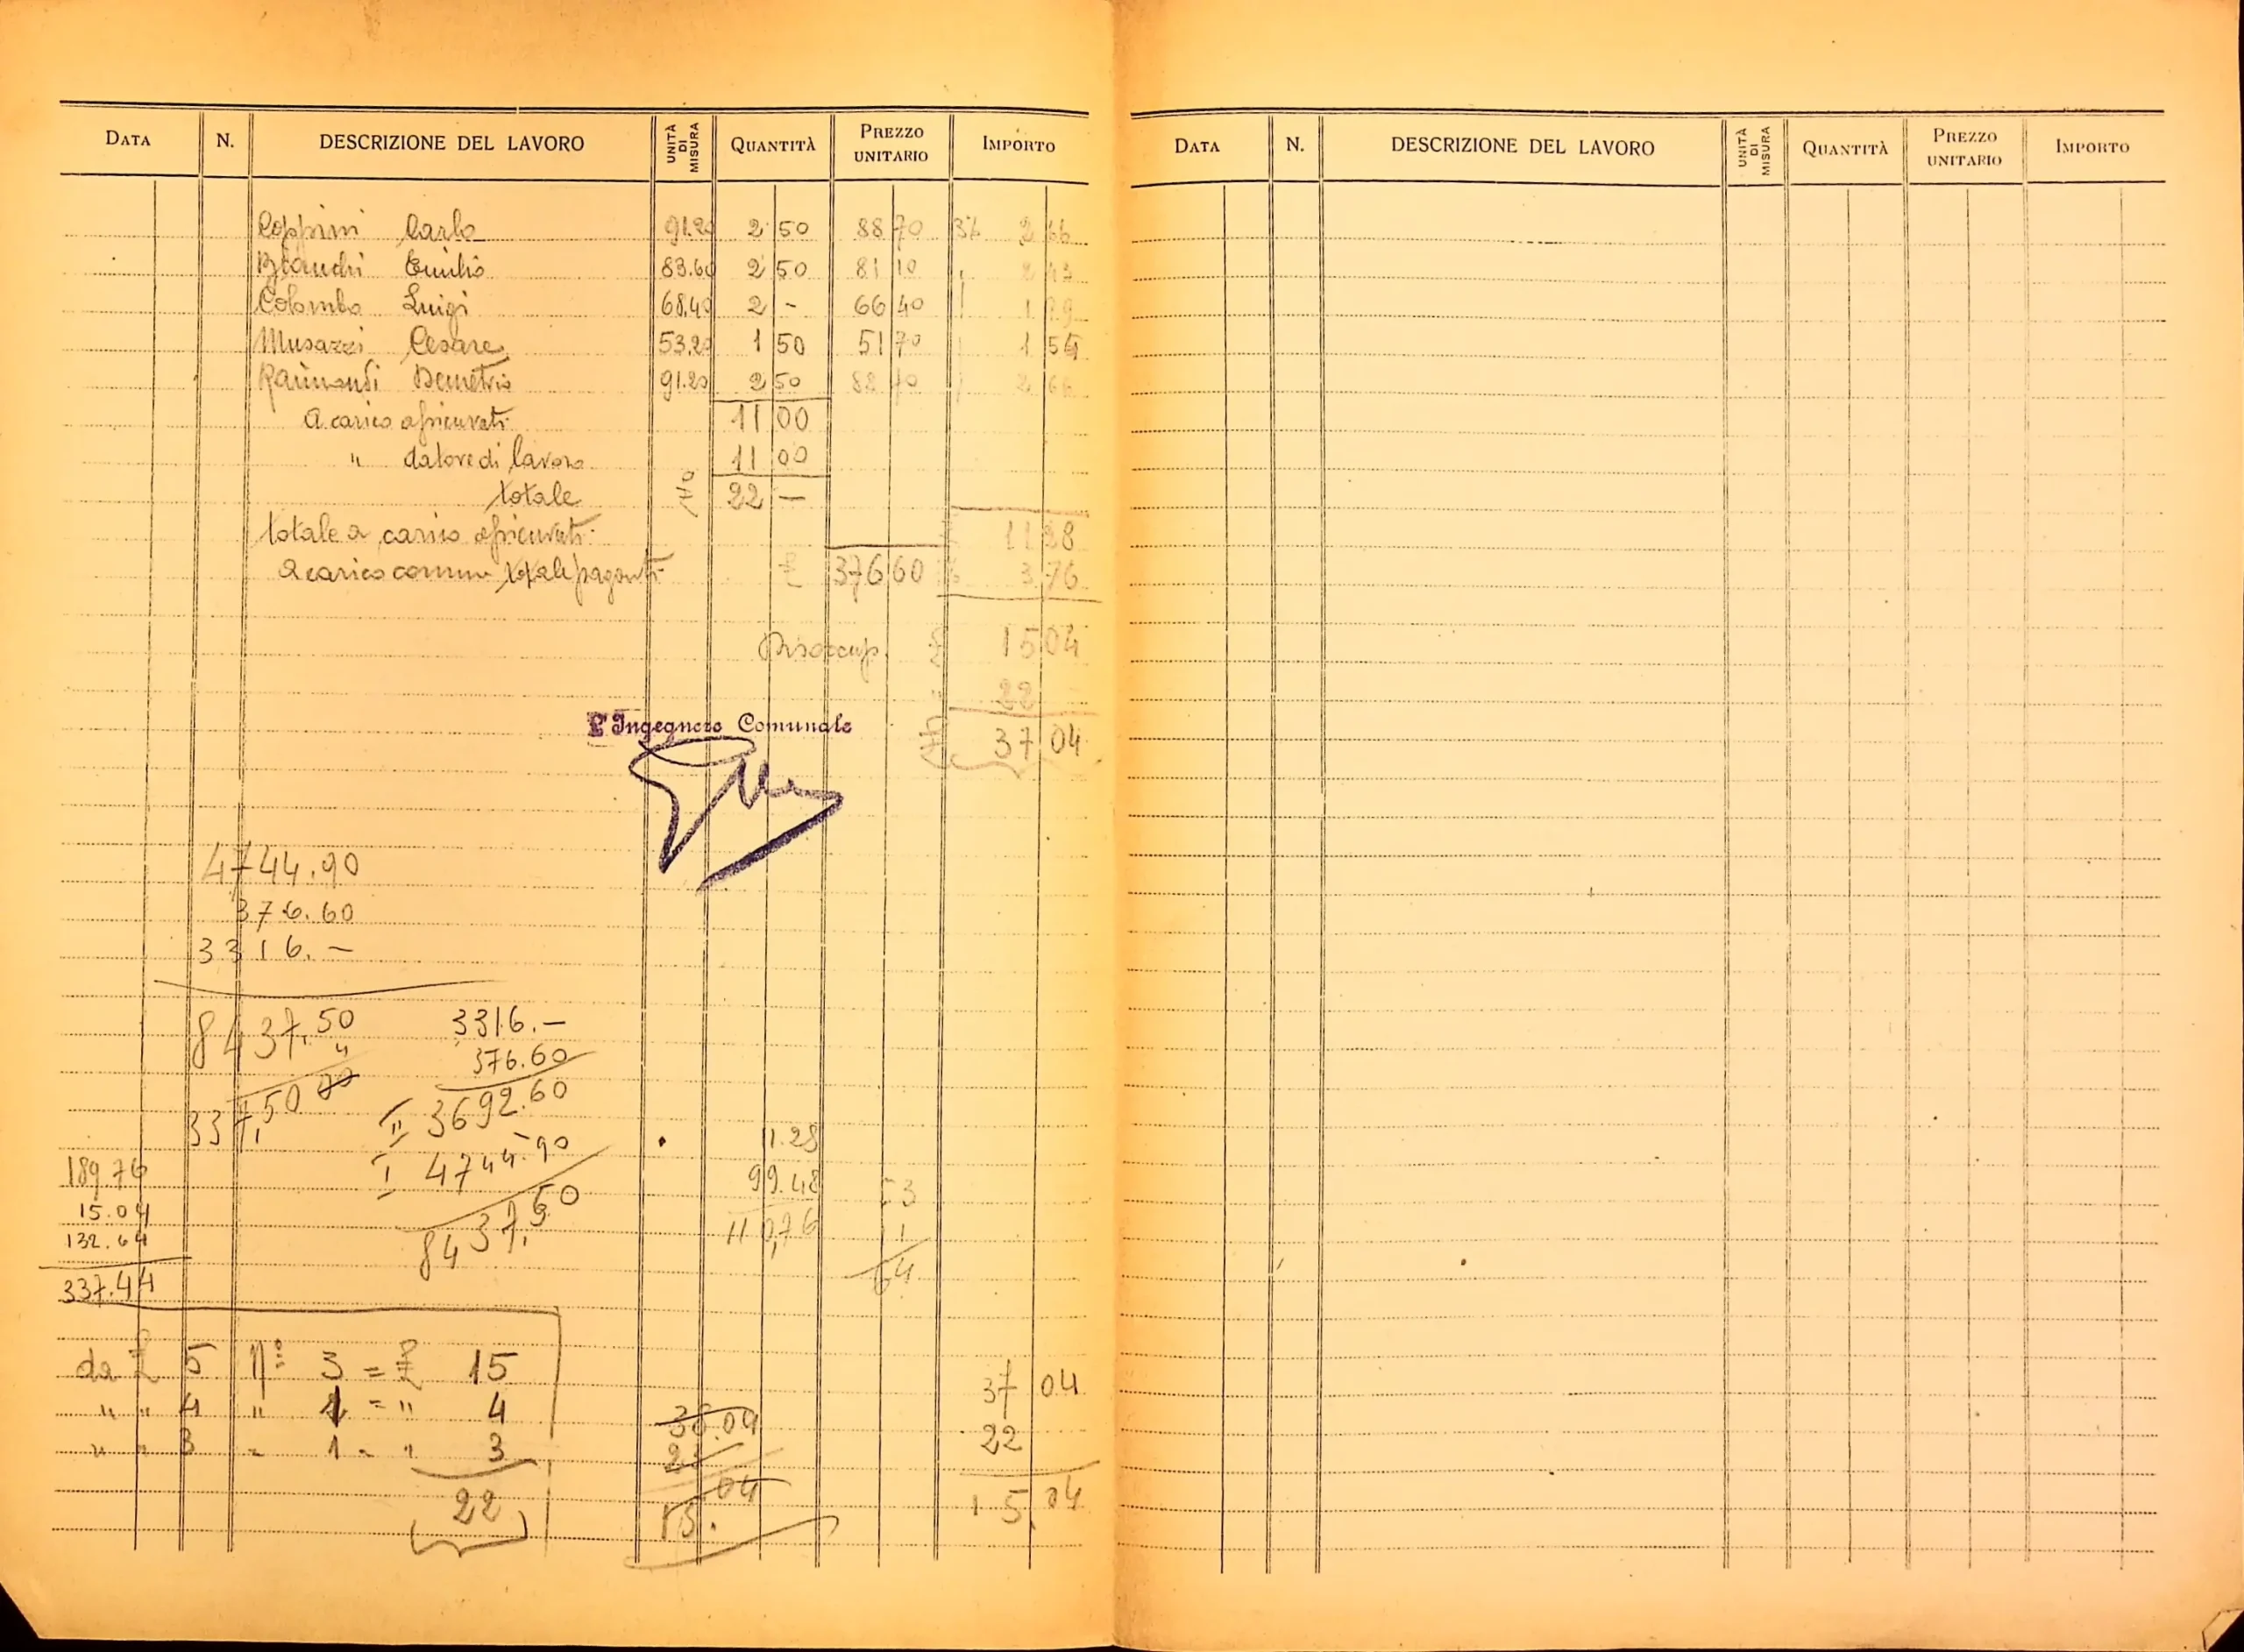 DATA N. DESCRIZIONE DEL LAVORO UNITÀ DI MISURA QUANTITÀ PREZZO UNITARIO IMPORTO
Coppini Carlo 91.20 2 50 88 70 3% 2 66
Bianchi Emilio 83.60 2 50 81 10 2 43
Colombo Luigi 68.40 2 - 66 40 1 99
Musazzi Cesare 53.20 1 50 51 70 1 54
Raimondi Demetrio 91.20 2 50 88 70 2 66
A carico assicurati 11 00
" datore di lavoro 11 00
totale 22 —
totale a carico assicurati 11 28
A carico comun totale paganti £ 376 60 3 76
Disoccup. £ 15 04
" 22
37 04
L'Ingegnere Comunale
4744.90
376.60
3316.—
8437.50
4
337,50 00
3316.—
376.60
II 3692.60
I 4744.90
8437,50
189 76
15.04
132.64
337.44
11.28
99.48
110,76
53
1
54
da £ 5 N° 3 = £ 15
" " 4 " 1 = " 4
" " 3 " 1 = " 3
22
36.04
15.04
37 04
22
15,04
DATA N. DESCRIZIONE DEL LAVORO UNITÀ DI MISURA QUANTITÀ PREZZO UNITARIO IMPORTO